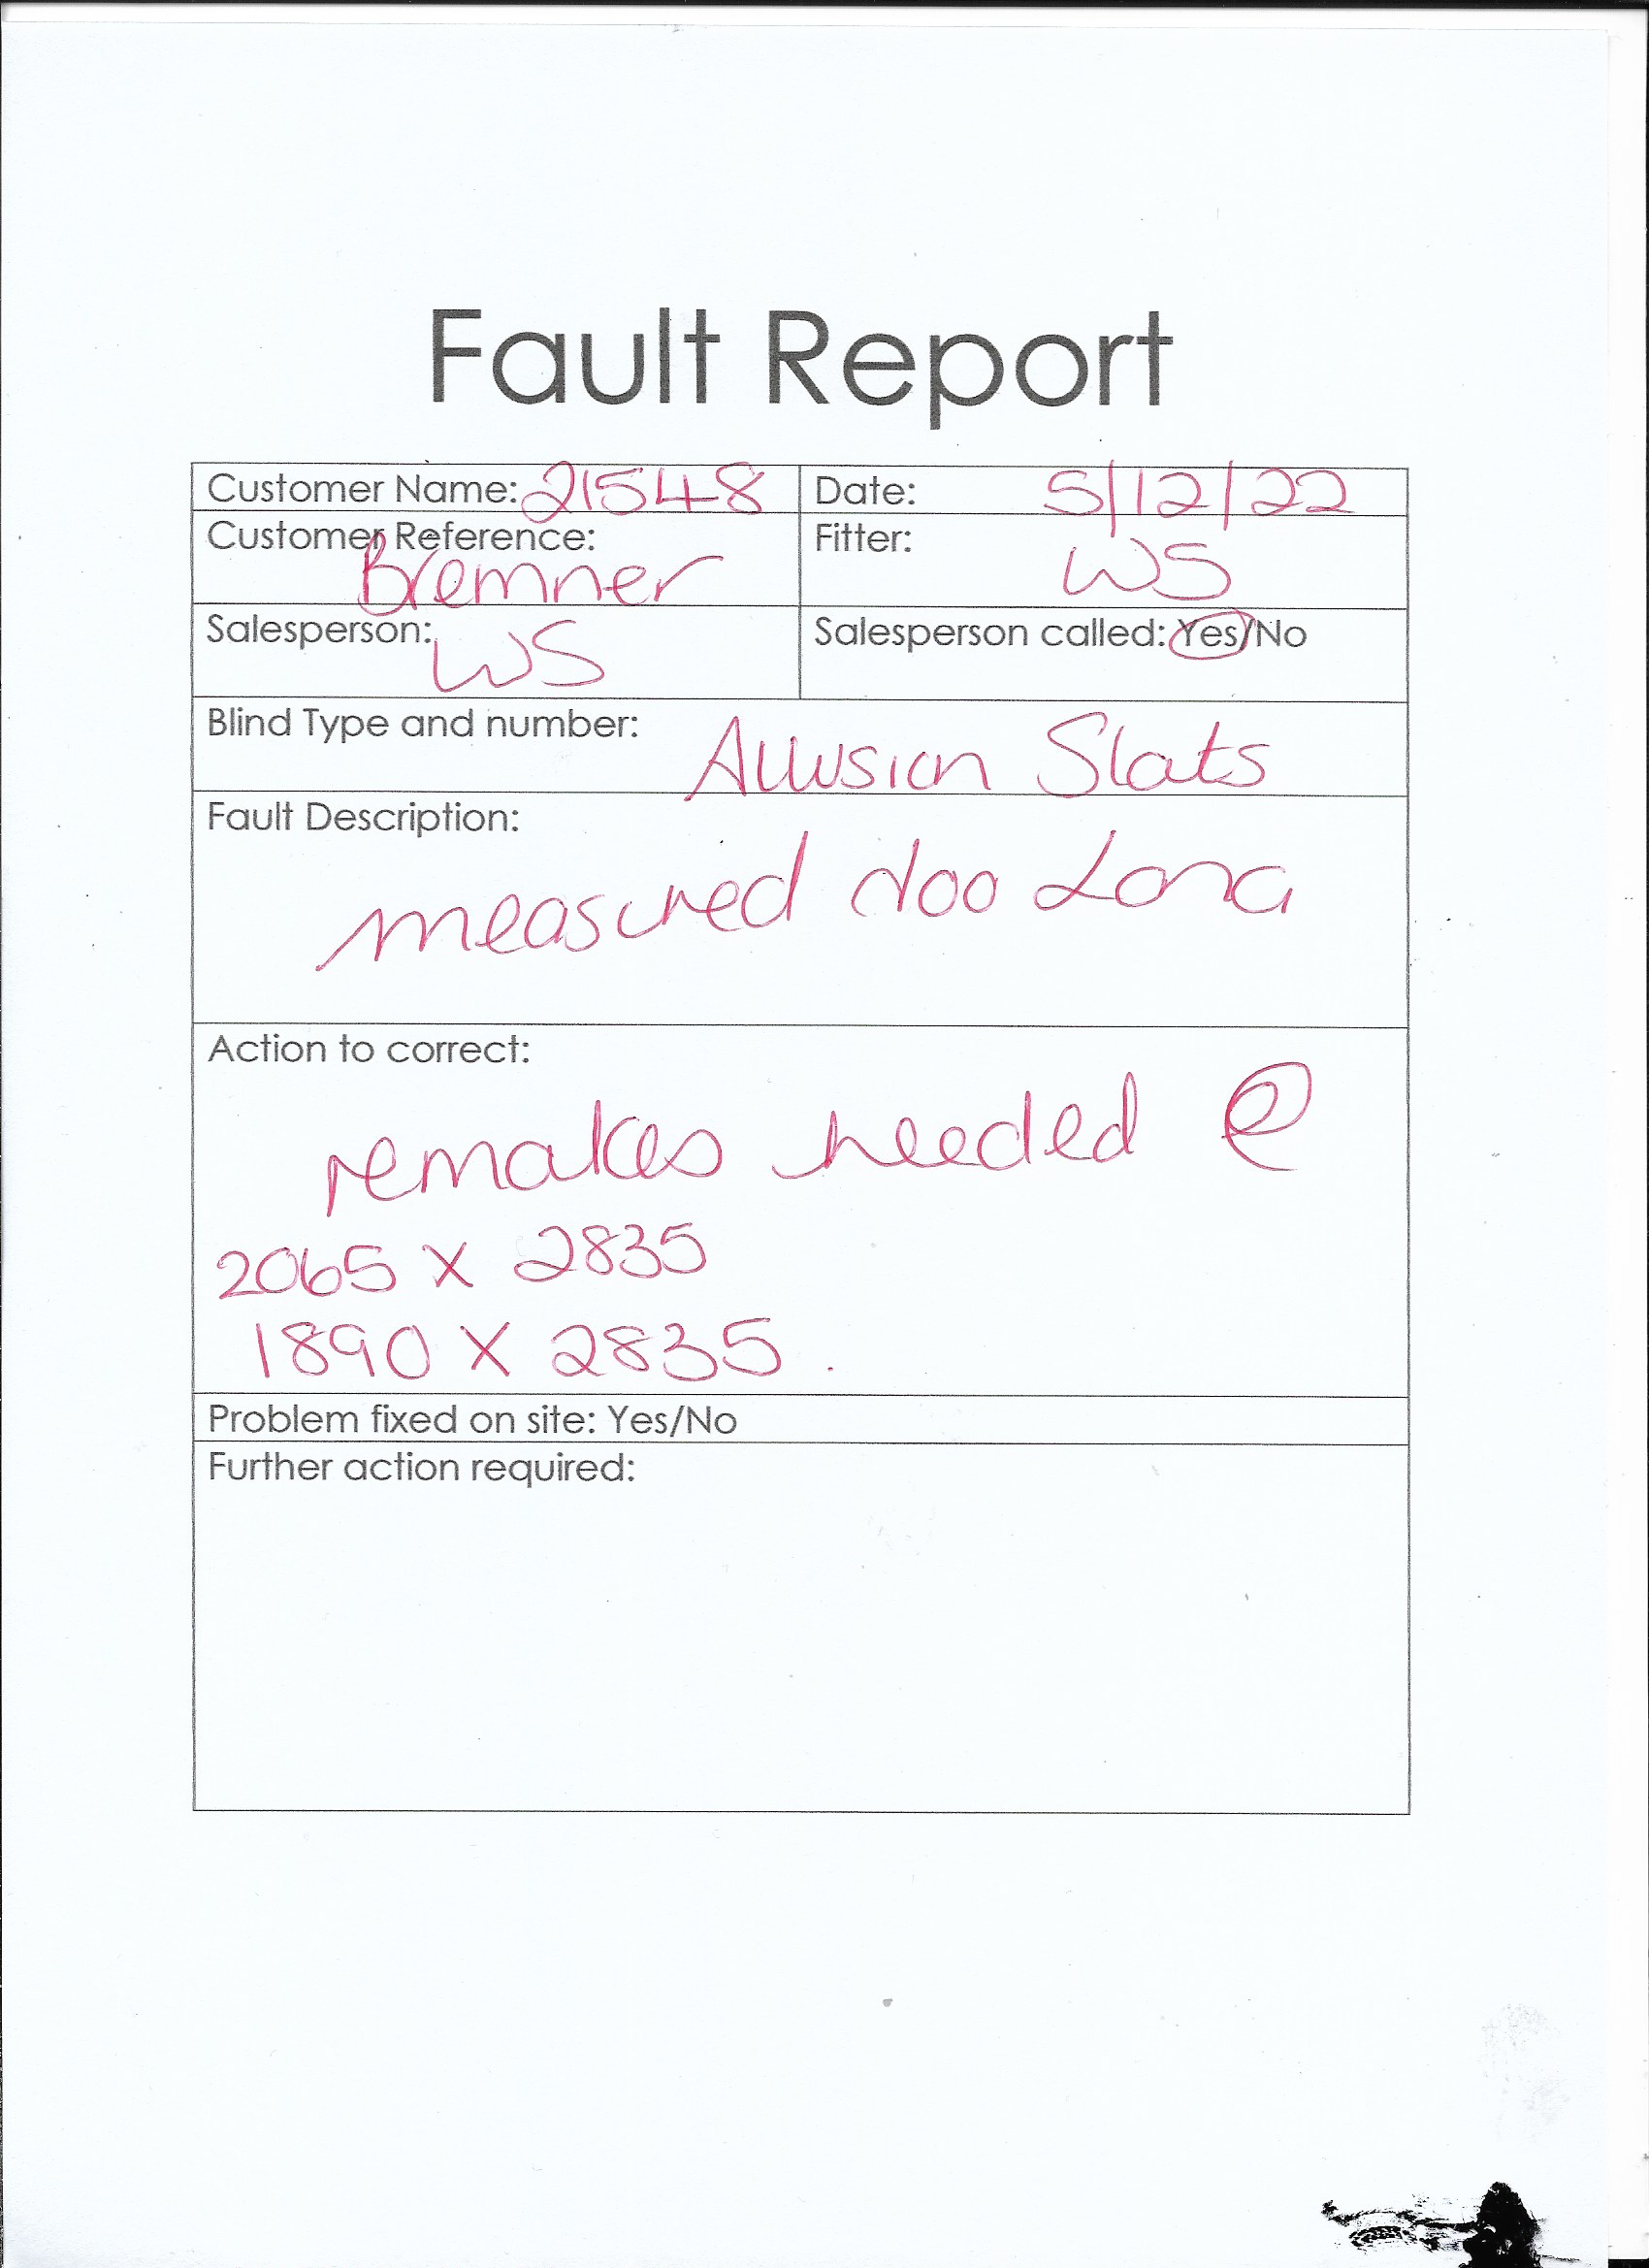 Fault Report
Customer Name: 21548
Date: 5/12/22
Customer Reference:
Bremner
Fitter:
WS
Salesperson: WS
Salesperson called: Yes/No
Blind Type and number: Allusion Slats
Fault Description:
measured too Long
Action to correct:
remakes needed @
2065 x 2835
1890 x 2835.
Problem fixed on site: Yes/No
Further action required: